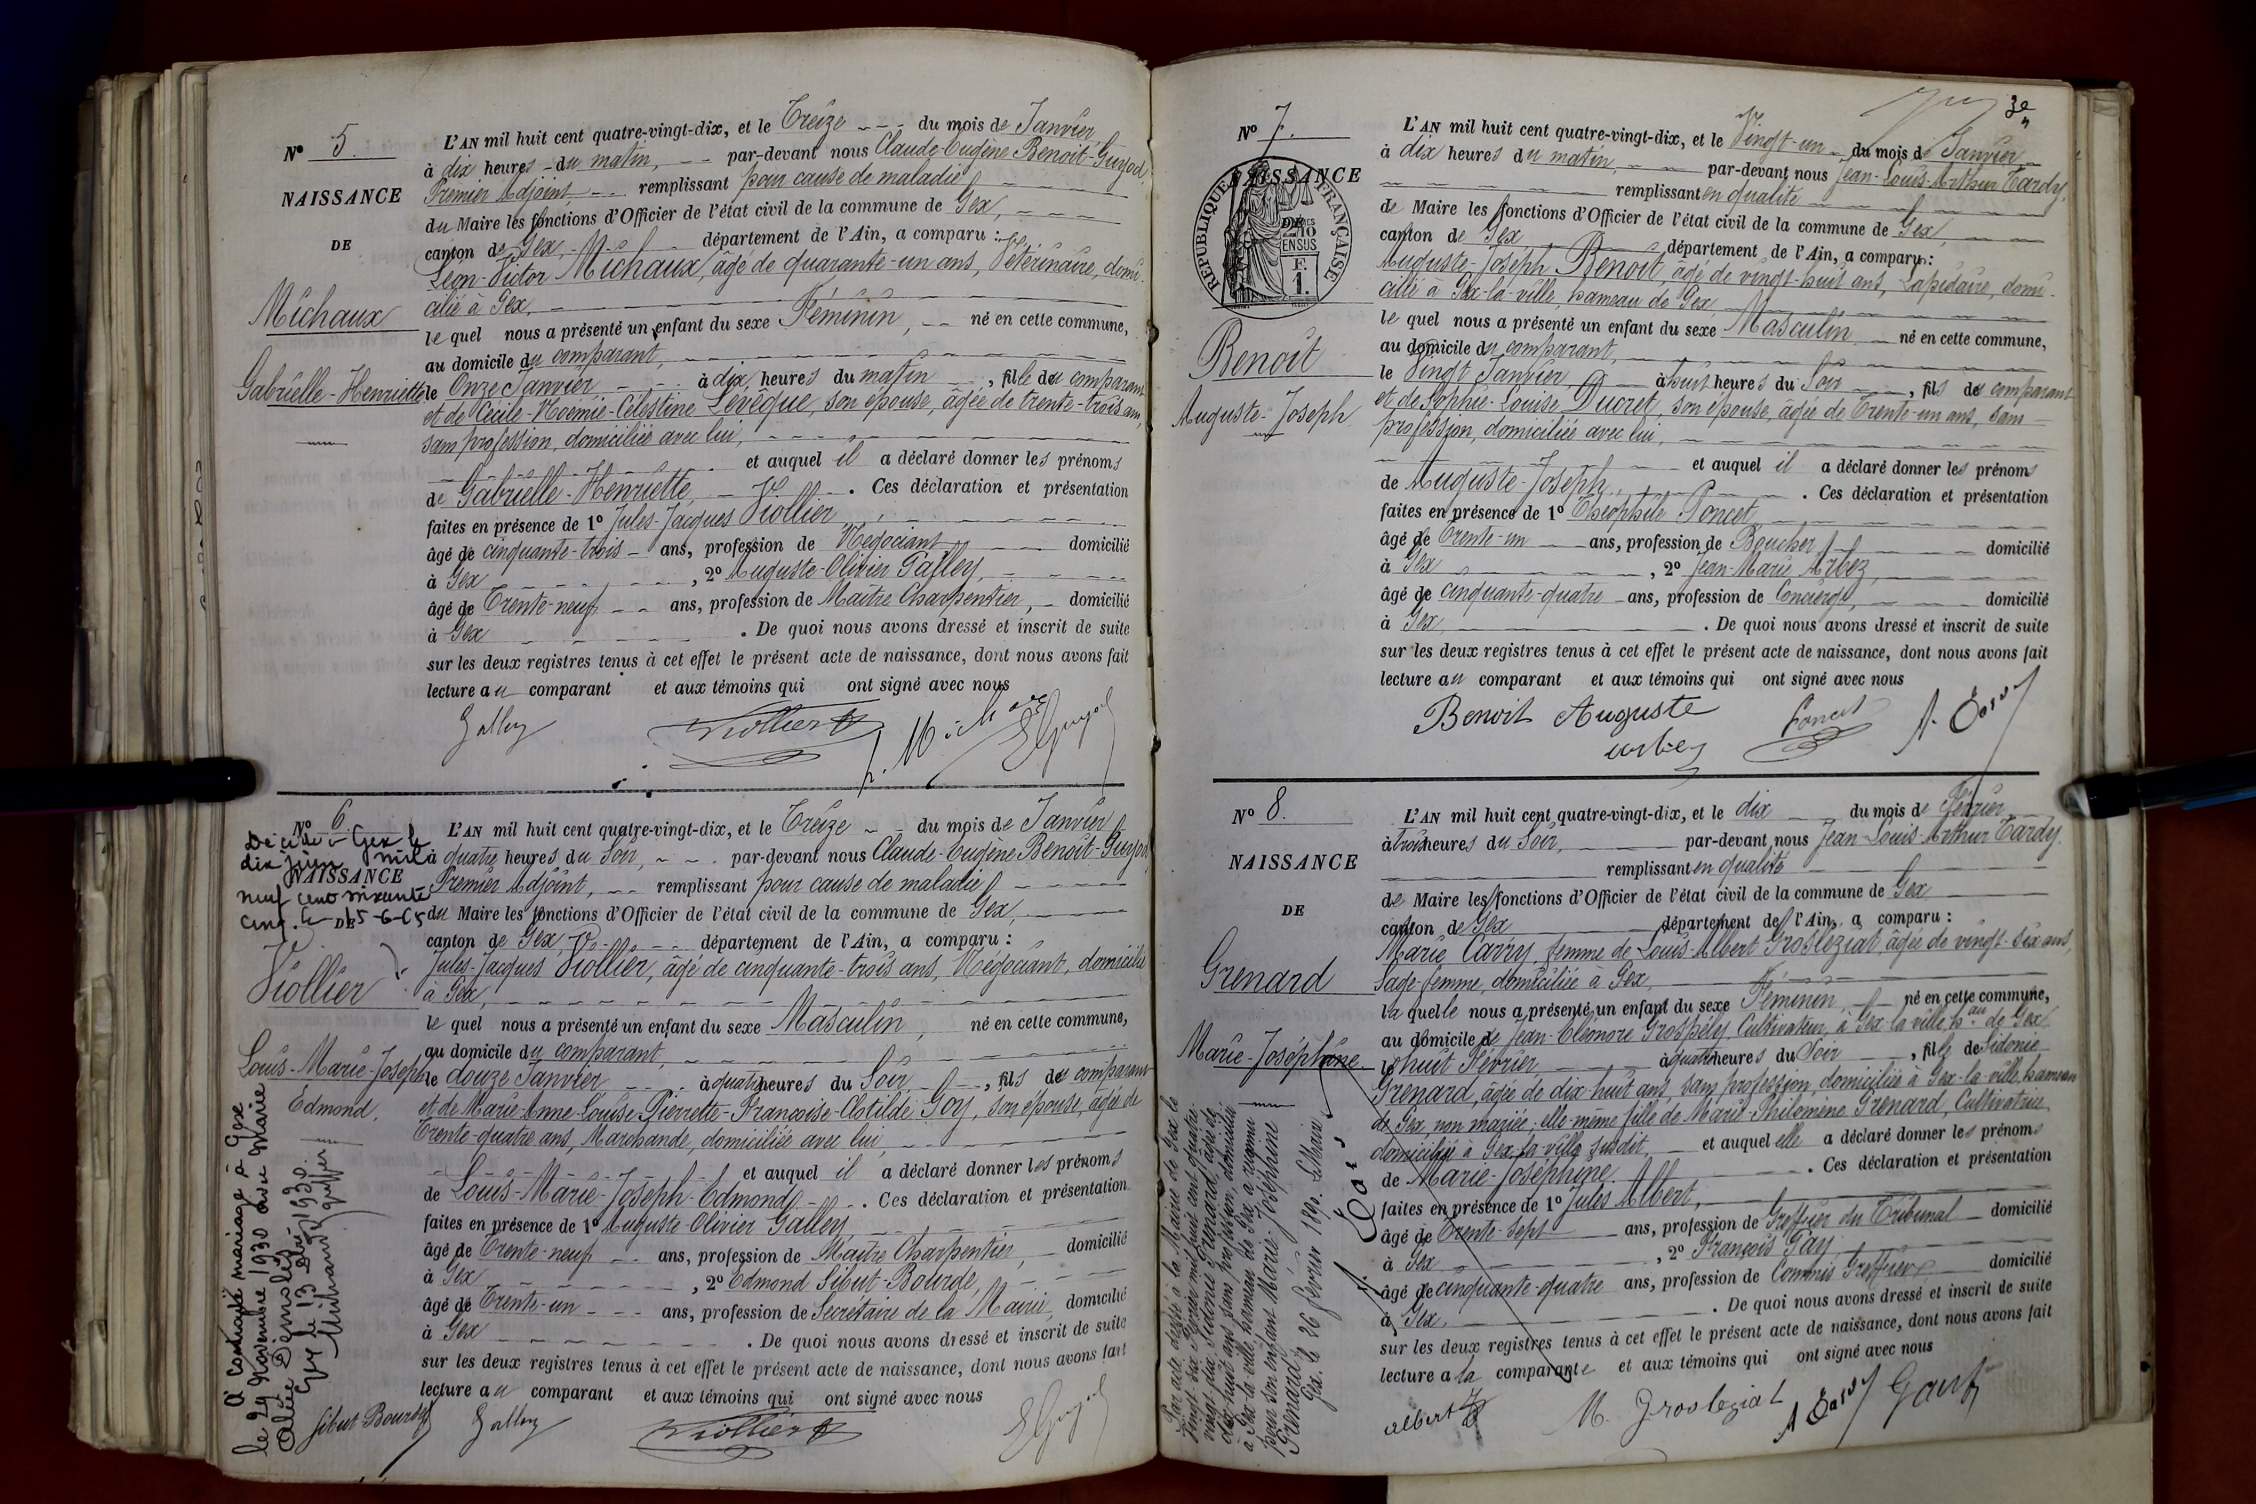 N° 5.
NAISSANCE
DE
Michaux
Gabrielle-Henriette
L'AN mil huit cent quatre-vingt-dix, et le Treize du mois de Janvier
à dix heures du matin, par-devant nous Claude-Eugène Benoit-Guyod,
Premier Adjoint, remplissant pour cause de maladie
du Maire les fonctions d'Officier de l'état civil de la commune de Gex,
canton de Gex, département de l'Ain, a comparu :
Léon-Victor Michaux, âgé de quarante-un ans, Vétérinaire, domi-
cilié à Gex,
le quel nous a présenté un enfant du sexe Féminin, né en cette commune,
au domicile du comparant,
le Onze Janvier à dix heures du matin, fille du comparant
et de Cécile-Noémie-Célestine Levêque, son épouse, âgée de trente-trois ans,
sans profession, domiciliée avec lui,
et auquel il a déclaré donner les prénoms
de Gabrielle-Henriette, . Ces déclaration et présentation
faites en présence de 1° Jules-Jacques Viollier
âgé de cinquante-trois ans, profession de Négociant domicilié
à Gex , 2° Auguste-Olivier Galley,
âgé de Trente-neuf ans, profession de Maître Charpentier, domicilié
à Gex . De quoi nous avons dressé et inscrit de suite
sur les deux registres tenus à cet effet le présent acte de naissance, dont nous avons fait
lecture au comparant et aux témoins qui ont signé avec nous
Galley Viollier Michaux EGuyod
N° 6.
Décédé à Gex le
dix juin mil
NAISSANCE
neuf cent soixante
cinq. Le 15-6-65
DE
Viollier
Louis-Marie-Joseph
Edmond.
A contracté mariage à Gex
le 29 Novembre 1930 avec Marie
Gex le 13 1930.
L'AN mil huit cent quatre-vingt-dix, et le Treize du mois de Janvier
à quatre heures du Soir, par-devant nous Claude-Eugène Benoit-Guyod
Premier Adjoint, remplissant pour cause de maladie
du Maire les fonctions d'Officier de l'état civil de la commune de Gex,
canton de Gex, département de l'Ain, a comparu :
Jules-Jacques Viollier, âgé de cinquante-trois ans, Négociant, domicilié
à Gex,
le quel nous a présenté un enfant du sexe Masculin, né en cette commune,
au domicile du comparant,
le douze Janvier à quatre heures du Soir, fils du comparant
et de Marie-Anne-Louise-Pierrette-Françoise-Clotilde Goy, son épouse, âgée de
Trente-quatre ans, Marchande, domiciliée avec lui,
et auquel il a déclaré donner les prénoms
de Louis-Marie-Joseph-Edmond . Ces déclaration et présentation
faites en présence de 1° Auguste Olivier Galley
âgé de Trente-neuf ans, profession de Maître Charpentier, domicilié
à Gex , 2° Edmond Sibut-Bourde,
âgé de Trente-un ans, profession de Secrétaire de la Mairie, domicilié
à Gex . De quoi nous avons dressé et inscrit de suite
sur les deux registres tenus à cet effet le présent acte de naissance, dont nous avons fait
lecture au comparant et aux témoins qui ont signé avec nous
Sibut-Bourde Galley Viollier EGuyod
3e
N° 7.
NAISSANCE
DE
RÉPUBLIQUE FRANÇAISE
Benoit
Auguste-Joseph
L'AN mil huit cent quatre-vingt-dix, et le Vingt-un du mois de Janvier
à dix heures du matin, par-devant nous Jean-Louis-Arthur Tardy,
remplissant en qualité
de Maire les fonctions d'Officier de l'état civil de la commune de Gex,
canton de Gex département de l'Ain, a comparu :
Auguste-Joseph Benoit, âgé de vingt-huit ans, Lapidaire, domi-
cilié à Gex-la-ville, hameau de Gex,
le quel nous a présenté un enfant du sexe Masculin né en cette commune,
au domicile du comparant,
le Vingt Janvier à huit heures du Soir, fils du comparant
et de Sophie-Louise Ducret, son épouse, âgée de Trente-un ans, sans
profession, domiciliée avec lui,
et auquel il a déclaré donner les prénoms
de Auguste-Joseph, . Ces déclaration et présentation
faites en présence de 1° Théophile Poncet
âgé de Trente-un ans, profession de Boucher domicilié
à Gex , 2° Jean-Marie Arbez,
âgé de cinquante-quatre ans, profession de Concierge, domicilié
à Gex . De quoi nous avons dressé et inscrit de suite
sur les deux registres tenus à cet effet le présent acte de naissance, dont nous avons fait
lecture au comparant et aux témoins qui ont signé avec nous
Benoit Auguste Poncet A. Tardy
arbez
N° 8.
NAISSANCE
DE
Grenard
Marie-Joséphine
Par acte dressé à la Mairie de Gex le
Vingt-six Février mil huit cent quatre-
vingt-dix, Sidonie Grenard, âgée de
dix-huit ans, sans profession, domiciliée
à Gex-la-ville, hameau de Gex, a reconnu
pour son enfant Marie-Joséphine
Grenard.
Gex, le 26 février 1890. Le Maire,
A. Tardy
L'AN mil huit cent quatre-vingt-dix, et le dix du mois de Février
à trois heures du Soir, par-devant nous Jean-Louis-Arthur Tardy.
remplissant en qualité
de Maire les fonctions d'Officier de l'état civil de la commune de Gex
canton de Gex département de l'Ain, a comparu :
Marie Carry, femme de Louis-Albert Grosleziat, âgée de vingt-six ans,
Sage-femme, domiciliée à Gex,
la quelle nous a présenté un enfant du sexe Féminin né en cette commune,
au domicile de Jean-Eléonore Grospély, Cultivateur, à Gex-la-ville, hau de Gex
le huit Février, à quatre heures du Soir, fille de Sidonie
Grenard, âgée de dix-huit ans, sans profession, domiciliée à Gex-la-ville, hameau
de Gex, non mariée ; elle-même fille de Marie-Philomène Grenard, Cultivatrice,
domiciliée à Gex-la-ville susdit, et auquel elle a déclaré donner les prénoms
de Marie-Joséphine. . Ces déclaration et présentation
faites en présence de 1° Jules Albert,
âgé de Trente-sept ans, profession de Greffier du Tribunal domicilié
à Gex , 2° François Gay,
âgé de cinquante-quatre ans, profession de Commis Greffier, domicilié
à Gex. . De quoi nous avons dressé et inscrit de suite
sur les deux registres tenus à cet effet le présent acte de naissance, dont nous avons fait
lecture à la comparante et aux témoins qui ont signé avec nous
albert M. Grosleziat A Tardy Gay